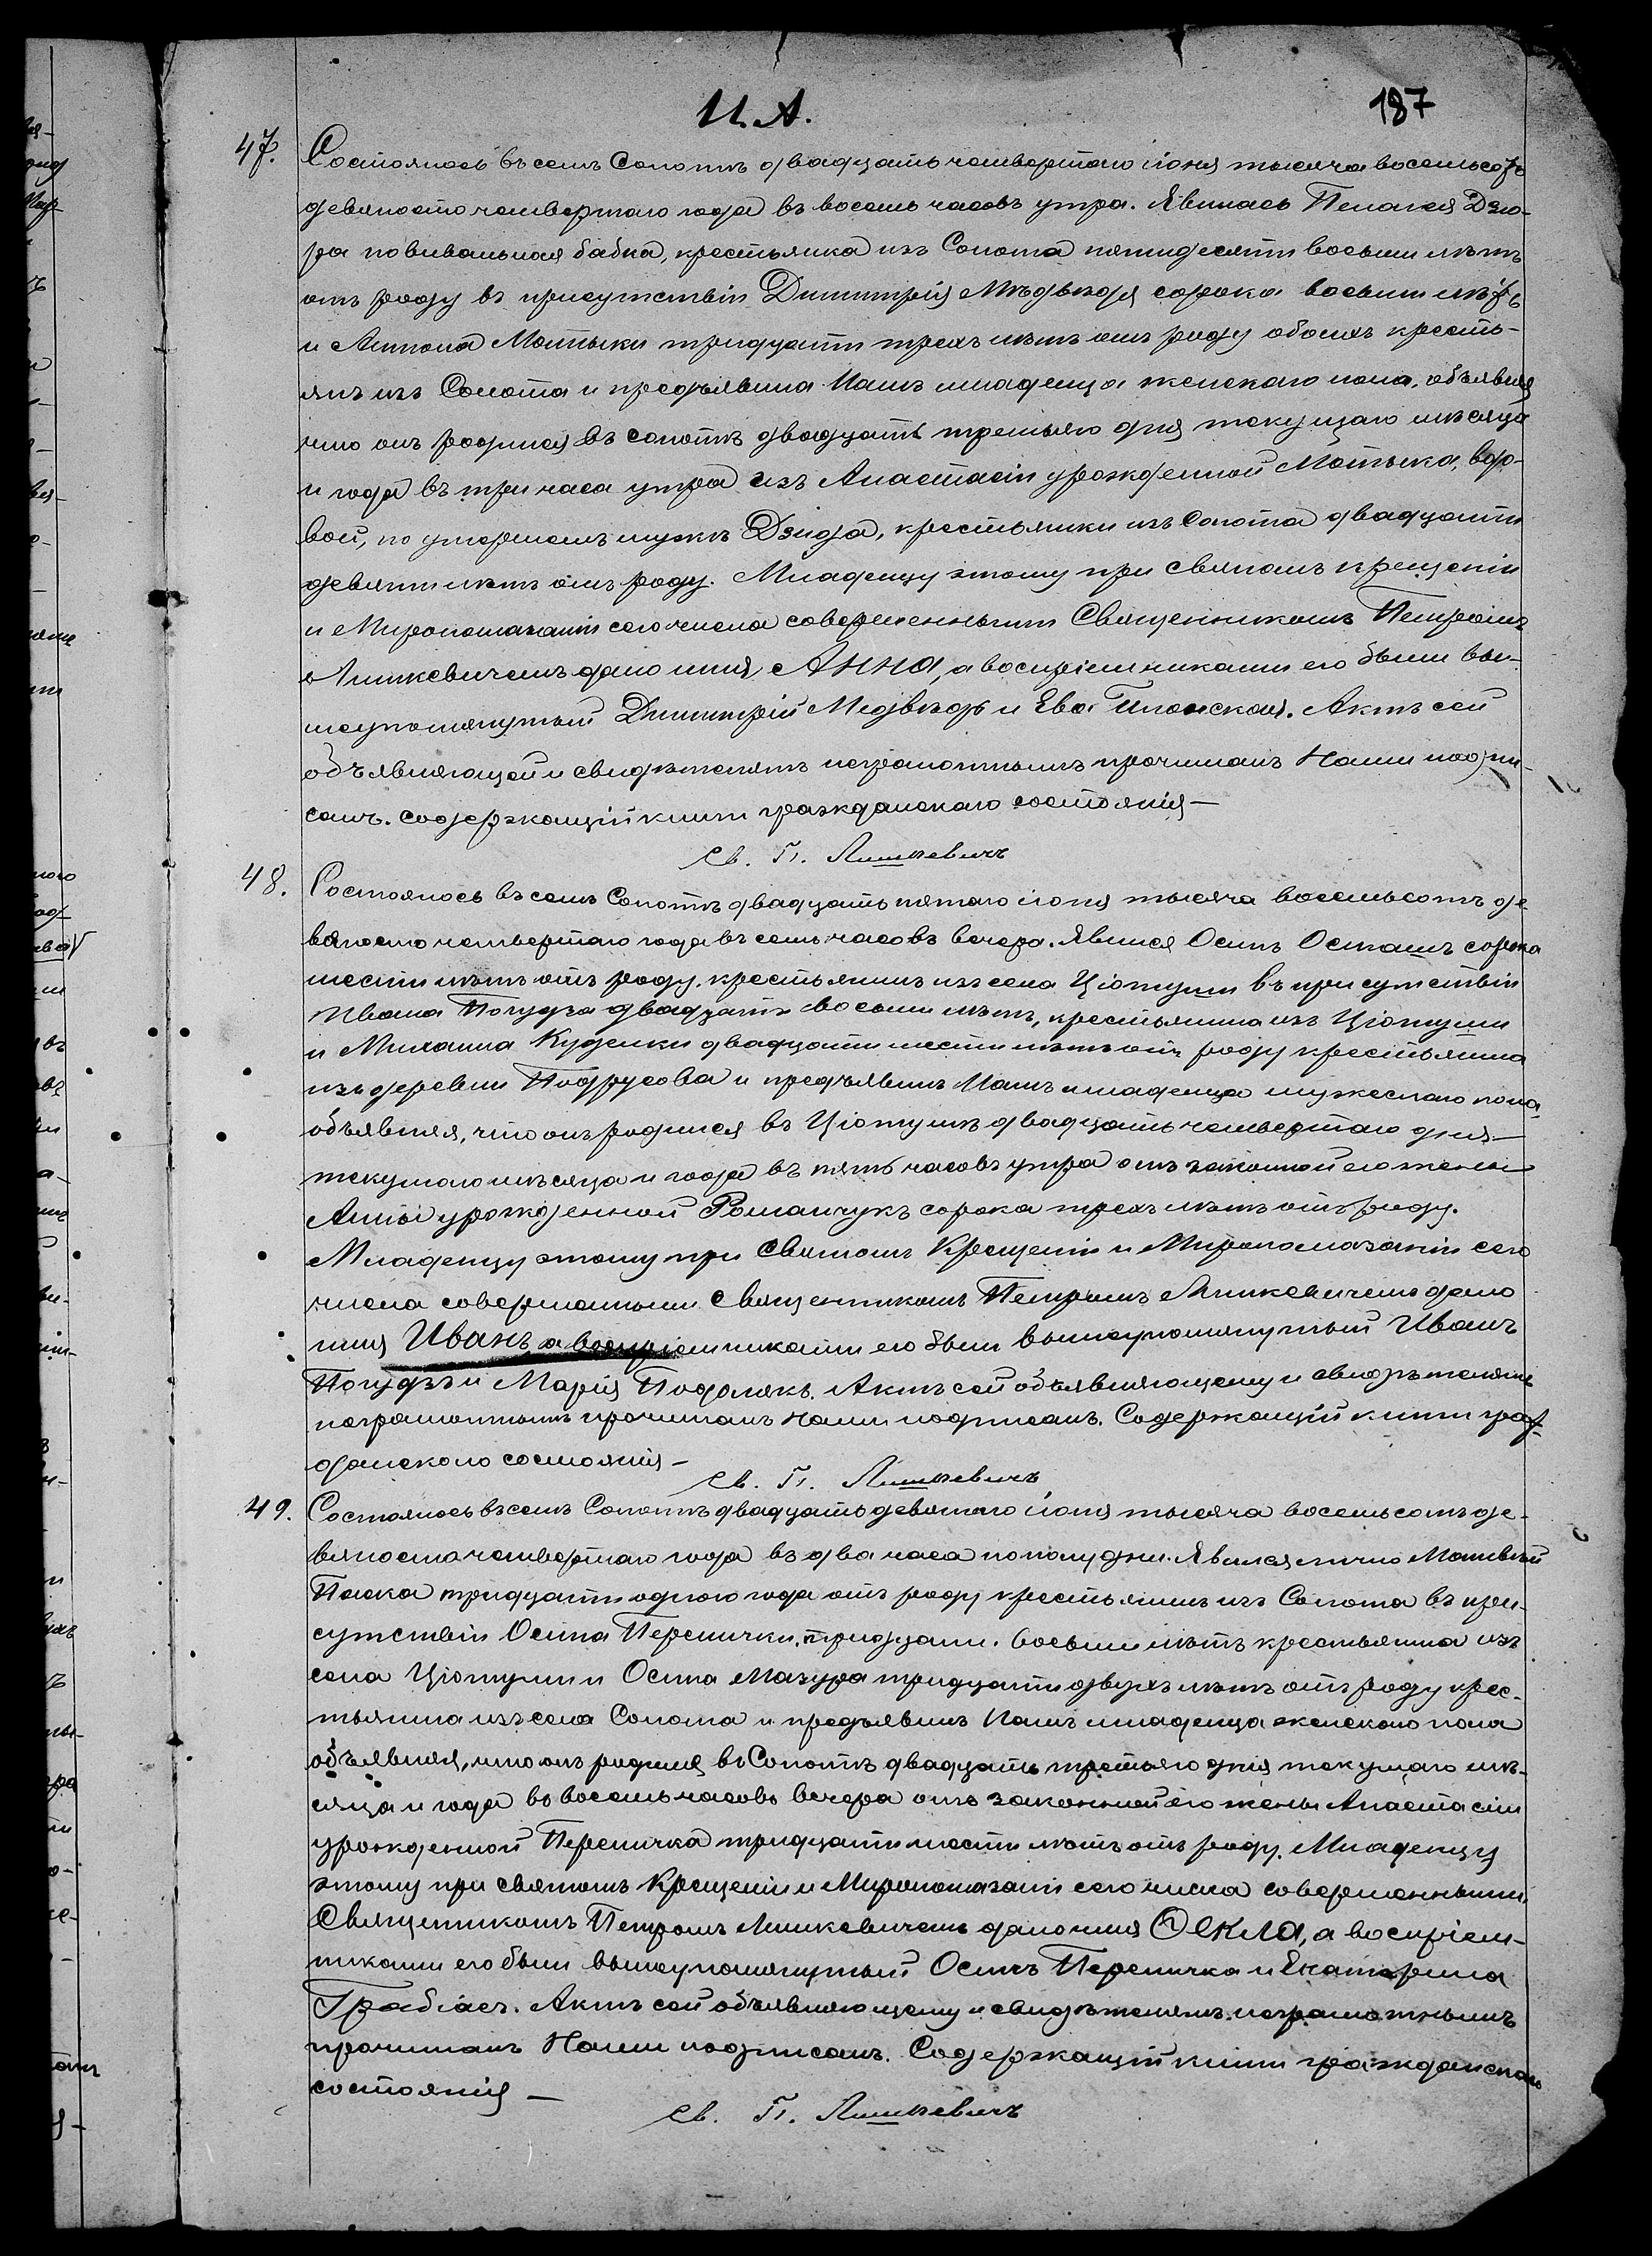 И. А.
187
47. Состоялось въ селѣ Сопотѣ двадцать четвертаго Іюня тысяча восемьсотъ
девяносто четвертаго года въ восемь часовъ утра. Явилась Пелагея Дзю-
ра повивальная бабка, крестьянка изъ Сопота пятидесяти восьми лѣтъ
отъ роду въ присутствіи Димитрія Мѣдвѣдя сорока восьми лѣтъ
и Антона Мотыки тридцати трехъ лѣтъ отъ роду обоихъ кресть-
янъ изъ Сопота и предъявила Намъ младенца женскаго пола, объявляя
что онъ родился въ Сопотѣ двадцать третьяго дня текущаго мѣсяца
и года въ три часа утра изъ Анастасіи урожденной Мотыка, вдо-
вой, по умершемъ мужѣ Дзида, крестьянки изъ Сопота двадцати
девяти лѣтъ отъ роду. Младенцу этому при Святомъ крещеніи
и Миропомазаніи сего числа совершеннымъ Священникомъ Петромъ
Линкевичемъ дано имя Анна, а воспріемниками его были вы-
шеупомянутый Димитрій Медвѣдь и Ева. Актъ сей
объявляющей и свидѣтелямъ неграмотнымъ прочитанъ Нами подпи-
санъ. Содержащій книги гражданскаго состоянія —
Св. П. Линкевичъ
48. Состоялось въ селѣ Сопотѣ двадцать пятаго Іюня тысяча восемьсотъ де-
вяносто четвертаго года въ семь часовъ вечера. Явился Осипъ Осташъ сорока
шести лѣтъ отъ роду, крестьянинъ изъ села Ціотуши въ присутствіи
Ивана Погудза двадцати восьми лѣтъ, крестьянина изъ Ціотуши
и Михаила Куделки двадцати шести лѣтъ отъ роду крестьянина
изъ деревни Подрусова и предъявилъ Намъ младенца мужескаго пола,
объявляя, что онъ родился въ Ціотушѣ двадцать четвертаго дня
текущаго мѣсяца и года въ пять часовъ утра отъ законной его жены
Анны урожденной Романчукъ сорока трехъ лѣтъ отъ роду.
Младенцу этому при Святомъ Крещеніи и Миропомазаніи сего
числа совершеннымъ Священникомъ Петромъ Линкевичемъ дано
имя Иванъ, а воспріемниками его были вышеупомянутый Иванъ
Погудзъ и Марія Подолякъ. Актъ сей объявляющему и свидѣтелямъ
неграмотнымъ прочитанъ Нами подписанъ. Содержащій книги граж-
данскаго состоянія —
Св. П. Линкевичъ
49. Состоялось въ селѣ Сопотѣ двадцать девятаго Іюня тысяча восемьсотъ де-
вяносто четвертаго года въ два часа пополудни. Явился лично Матвѣй
Паска тридцати одного года отъ роду крестьянинъ изъ Сопота въ при-
сутствіи Осипа Перепички, тридцати восьми лѣтъ крестьянина изъ
села Ціотуши и Осипа Мазура тридцати двухъ лѣтъ отъ роду крес-
тьянина изъ села Сопота и предъявилъ Намъ младенца женскаго пола
объявляя, что онъ родился въ Сопотѣ двадцать третьяго дня текущаго мѣ-
сяца и года въ восемь часовъ вечера отъ законной его жены Анастасіи
урожденной Перепичка тридцати шести лѣтъ отъ роду. Младенцу
этому при Святомъ Крещеніи и Миропомазаніи сего числа совершеннымъ
Священникомъ Петромъ Линкевичемъ дано имя Ѳекла, а воспріем-
никами его были вышеупомянутый Осипъ Перепичка и Екатерина
Грабіасъ. Актъ сей объявляющему и свидѣтелямъ неграмотнымъ
прочитанъ Нами подписанъ. Содержащій книги гражданскаго
состоянія —
Св. П. Линкевичъ